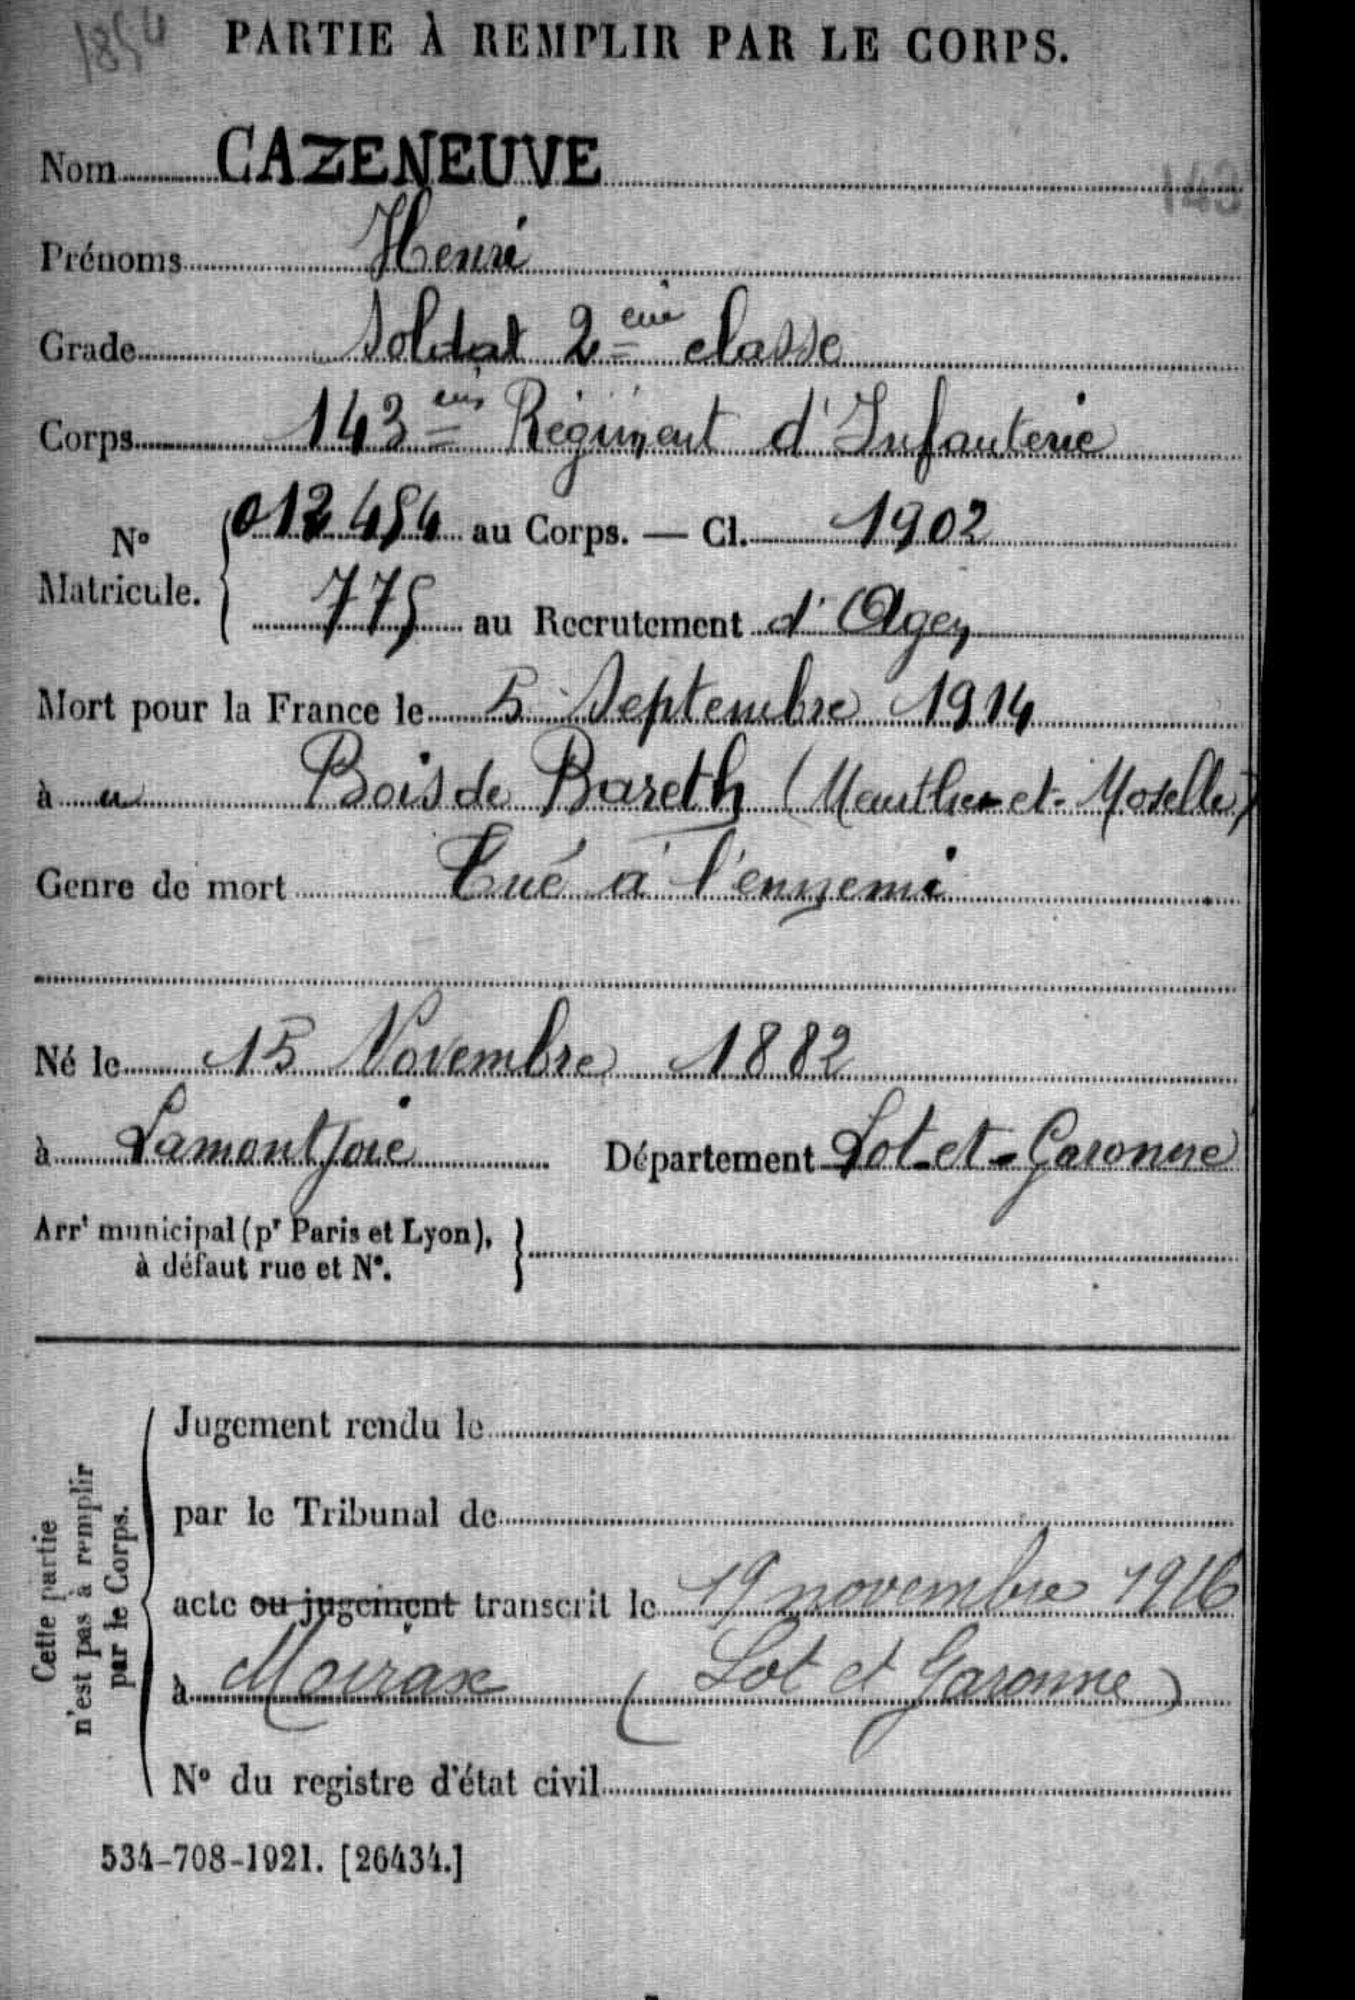 1854
PARTIE À REMPLIR PAR LE CORPS.
Nom CAZENEUVE
143
Prénoms Henri
Grade Soldat 2ème classe
Corps 143ème Régiment d'Infanterie
No Matricule. { 012454 au Corps. — Cl. 1902
775 au Recrutement d'Agen
Mort pour la France le 5 Septembre 1914
à u Bois de Bareth (Meurthe-et-Moselle)
Genre de mort Tué à l'ennemi
Né le 15 Novembre 1882
à Lamontjoie Département Lot-et-Garonne
Arrt municipal (pr Paris et Lyon),
à défaut rue et No. }
Cette partie
n'est pas à remplir
par le Corps.
Jugement rendu le
par le Tribunal de
acte ou jugement transcrit le 19 novembre 1916
à Moirax (Lot et Garonne)
No du registre d'état civil
534-708-1921. [26434.]